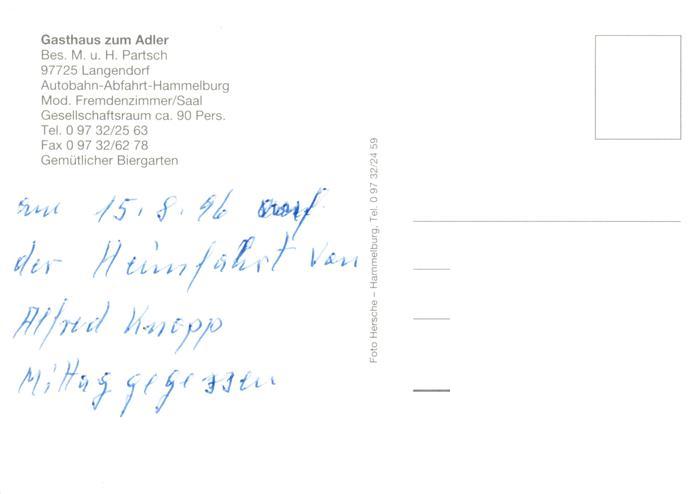 Gasthaus zum Adler
Bes. M. u. H. Partsch
97725 Langendorf
Autobahn-Abfahrt-Hammelburg
Mod. Fremdenzimmer/Saal
Gesellschaftsraum ca. 90 Pers.
Tel. 0 97 32/25 63
Fax 0 97 32/62 78
Gemütlicher Biergarten
am 15. 8. 96 auf
der Heimfahrt von
Alfred Knopp
Mittag gegessen
Foto Hersche – Hammelburg, Tel. 0 97 32/24 59